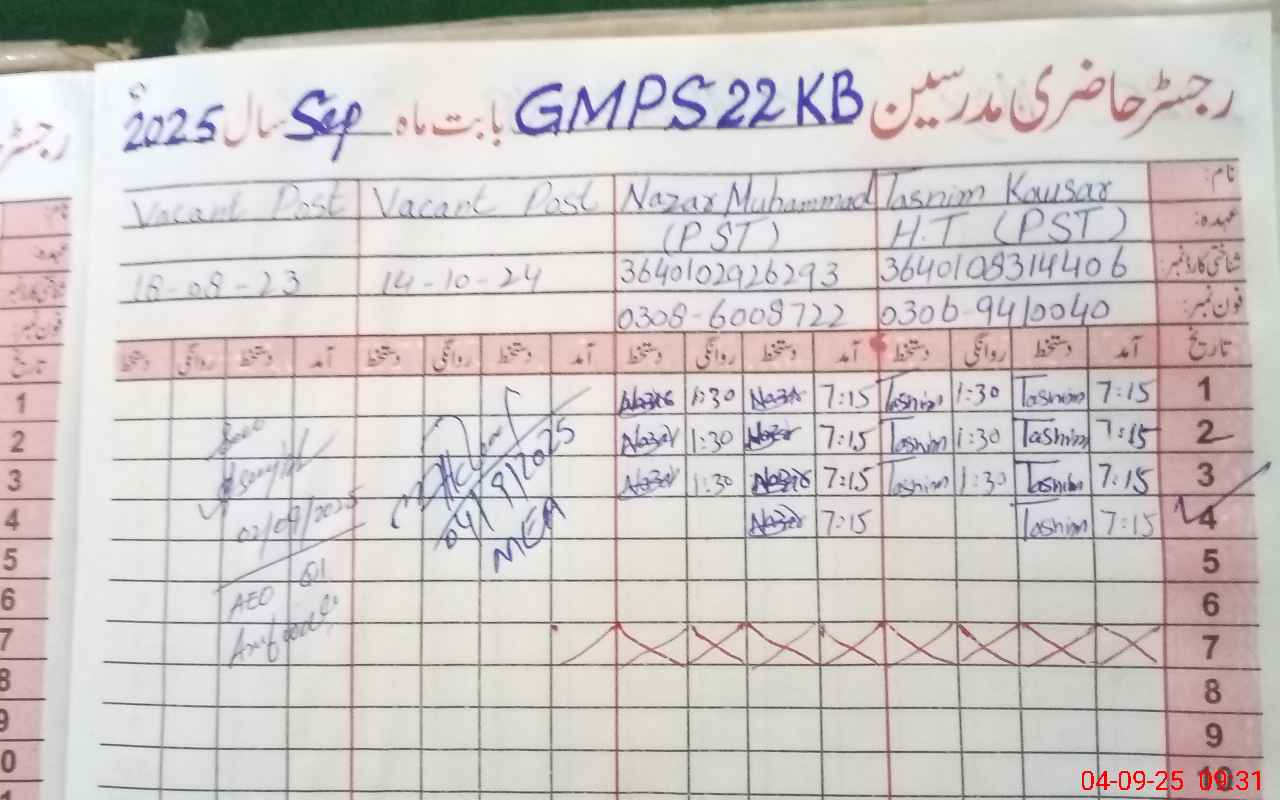 رجسٹر حاضری مدرسین GMPS 22 KB بابت ماہ Sep سال 2025ء
نام: Tasnim Kousar Nazar Muhammad Vacant Post Vacant Post
عہدہ: H.T (PST) (PST)
شناختی کارڈ نمبر: 3640108314406 3640102926293 14-10-24 18-08-23
فون نمبر: 0306-9410040 0308-6008722
تاریخ آمد دستخط روانگی دستخط آمد دستخط روانگی دستخط آمد دستخط روانگی دستخط آمد دستخط روانگی دستخط
1 7:15 Tasnim 1:30 Tasnim 7:15 Nazar 1:30 Nazar
2 7:15 Tasnim 1:30 Tasnim 7:15 Nazar 1:30 Nazar
3 7:15 Tasnim 1:30 Tasnim 7:15 Nazar 1:30 Nazar
4 7:15 Tasnim 7:15 Nazar
04/9/2025
MEA
02/09/2025
AEO
5
6
7
8
9
10
رجسٹر
نام:
عہدہ:
فون نمبر:
تاریخ
1
2
3
4
5
6
7
8
9
0
1
04-09-25 09:31